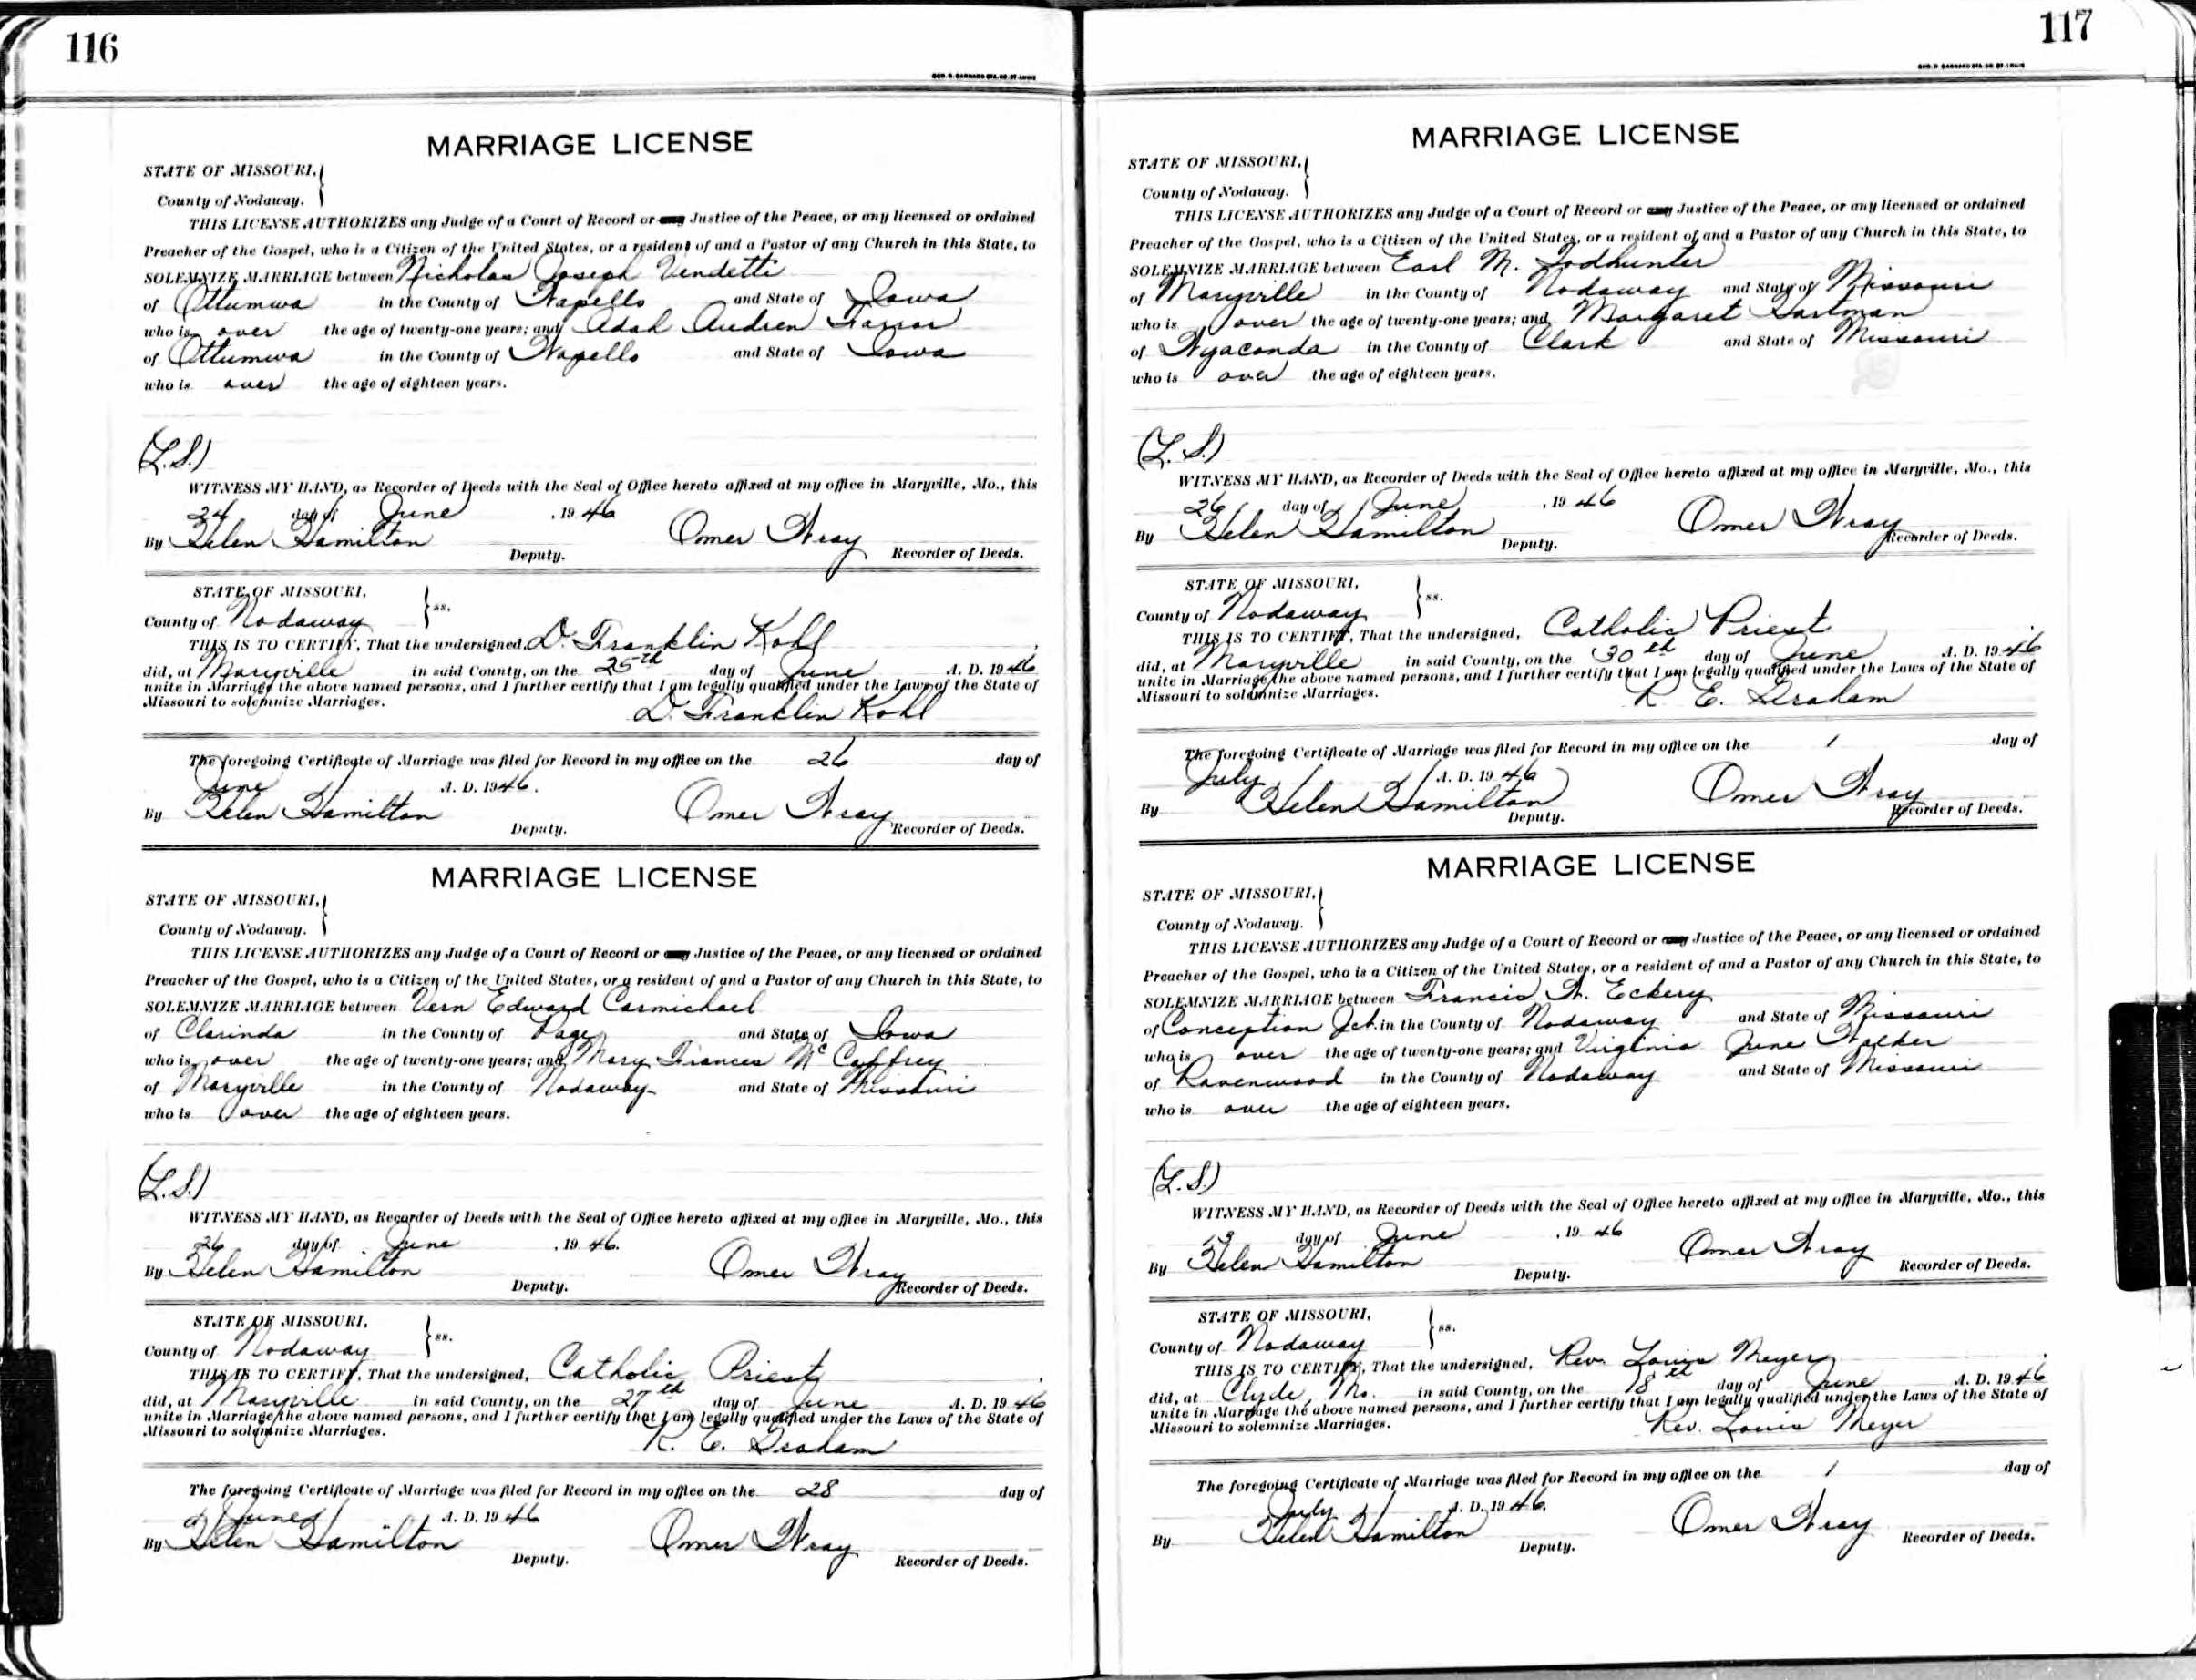 116
GEO. D. BARNARD STA. CO. ST. LOUIS
MARRIAGE LICENSE
STATE OF MISSOURI,
County of Nodaway.
THIS LICENSE AUTHORIZES any Judge of a Court of Record or any Justice of the Peace, or any licensed or ordained
Preacher of the Gospel, who is a Citizen of the United States, or a resident of and a Pastor of any Church in this State, to
SOLEMNIZE MARRIAGE between Nicholas Joseph Vendetti
of Ottumwa in the County of Wapello and State of Iowa
who is over the age of twenty-one years; and Adah Audren Farrar
of Ottumwa in the County of Wapello and State of Iowa
who is over the age of eighteen years.
(L.S.)
WITNESS MY HAND, as Recorder of Deeds with the Seal of Office hereto affixed at my office in Maryville, Mo., this
24 day of June , 1946
By Helen Hamilton Deputy. Omer Wray Recorder of Deeds.
STATE OF MISSOURI,
County of Nodaway ss.
THIS IS TO CERTIFY, That the undersigned, D. Franklin Kohl
did, at Maryville in said County, on the 25th day of June A. D. 1946
unite in Marriage the above named persons, and I further certify that I am legally qualified under the Laws of the State of
Missouri to solemnize Marriages.
D. Franklin Kohl
The foregoing Certificate of Marriage was filed for Record in my office on the 26 day of
June A. D. 1946.
By Helen Hamilton Deputy. Omer Wray Recorder of Deeds.
MARRIAGE LICENSE
STATE OF MISSOURI,
County of Nodaway.
THIS LICENSE AUTHORIZES any Judge of a Court of Record or any Justice of the Peace, or any licensed or ordained
Preacher of the Gospel, who is a Citizen of the United States, or a resident of and a Pastor of any Church in this State, to
SOLEMNIZE MARRIAGE between Vern Edward Carmichael
of Clarinda in the County of Page and State of Iowa
who is over the age of twenty-one years; and Mary Frances McCaffrey
of Maryville in the County of Nodaway and State of Missouri
who is over the age of eighteen years.
(L.S.)
WITNESS MY HAND, as Recorder of Deeds with the Seal of Office hereto affixed at my office in Maryville, Mo., this
26 day of June , 1946.
By Helen Hamilton Deputy. Omer Wray Recorder of Deeds.
STATE OF MISSOURI,
County of Nodaway ss.
THIS IS TO CERTIFY, That the undersigned, Catholic Priest
did, at Maryville in said County, on the 27th day of June A. D. 1946
unite in Marriage the above named persons, and I further certify that I am legally qualified under the Laws of the State of
Missouri to solemnize Marriages.
R. E. Graham
The foregoing Certificate of Marriage was filed for Record in my office on the 28 day of
June A. D. 1946
By Helen Hamilton Deputy. Omer Wray Recorder of Deeds.
117
GEO. D. BARNARD STA. CO. ST. LOUIS
MARRIAGE LICENSE
STATE OF MISSOURI,
County of Nodaway.
THIS LICENSE AUTHORIZES any Judge of a Court of Record or any Justice of the Peace, or any licensed or ordained
Preacher of the Gospel, who is a Citizen of the United States, or a resident of and a Pastor of any Church in this State, to
SOLEMNIZE MARRIAGE between Earl M. Todhunter
of Maryville in the County of Nodaway and State of Missouri
who is over the age of twenty-one years; and Margaret Hartman
of Wyaconda in the County of Clark and State of Missouri
who is over the age of eighteen years.
(L.S.)
WITNESS MY HAND, as Recorder of Deeds with the Seal of Office hereto affixed at my office in Maryville, Mo., this
26 day of June , 1946
By Helen Hamilton Deputy. Omer Wray Recorder of Deeds.
STATE OF MISSOURI,
County of Nodaway ss.
THIS IS TO CERTIFY, That the undersigned, Catholic Priest
did, at Maryville in said County, on the 30th day of June A. D. 1946
unite in Marriage the above named persons, and I further certify that I am legally qualified under the Laws of the State of
Missouri to solemnize Marriages.
R. E. Graham
The foregoing Certificate of Marriage was filed for Record in my office on the 1 day of
July A. D. 1946
By Helen Hamilton Deputy. Omer Wray Recorder of Deeds.
MARRIAGE LICENSE
STATE OF MISSOURI,
County of Nodaway.
THIS LICENSE AUTHORIZES any Judge of a Court of Record or any Justice of the Peace, or any licensed or ordained
Preacher of the Gospel, who is a Citizen of the United States, or a resident of and a Pastor of any Church in this State, to
SOLEMNIZE MARRIAGE between Francis A. Eckery
of Conception Jct. in the County of Nodaway and State of Missouri
who is over the age of twenty-one years; and Virginia June Walker
of Ravenwood in the County of Nodaway and State of Missouri
who is over the age of eighteen years.
(L.S.)
WITNESS MY HAND, as Recorder of Deeds with the Seal of Office hereto affixed at my office in Maryville, Mo., this
13 day of June , 1946
By Helen Hamilton Deputy. Omer Wray Recorder of Deeds.
STATE OF MISSOURI,
County of Nodaway ss.
THIS IS TO CERTIFY, That the undersigned, Rev. Louis Meyer
did, at Clyde, Mo. in said County, on the 18th day of June A. D. 1946
unite in Marriage the above named persons, and I further certify that I am legally qualified under the Laws of the State of
Missouri to solemnize Marriages.
Rev. Louis Meyer
The foregoing Certificate of Marriage was filed for Record in my office on the 1 day of
July A. D. 1946.
By Helen Hamilton Deputy. Omer Wray Recorder of Deeds.